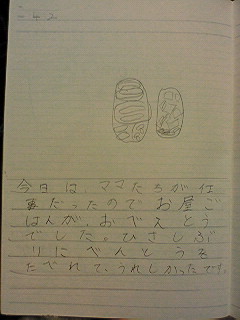 今日は、ママたちが仕
事だったのでお昼ご
はんが、おべんとう
でした。ひさしぶ
りにべんとうを
たべれて、うれしかったです。